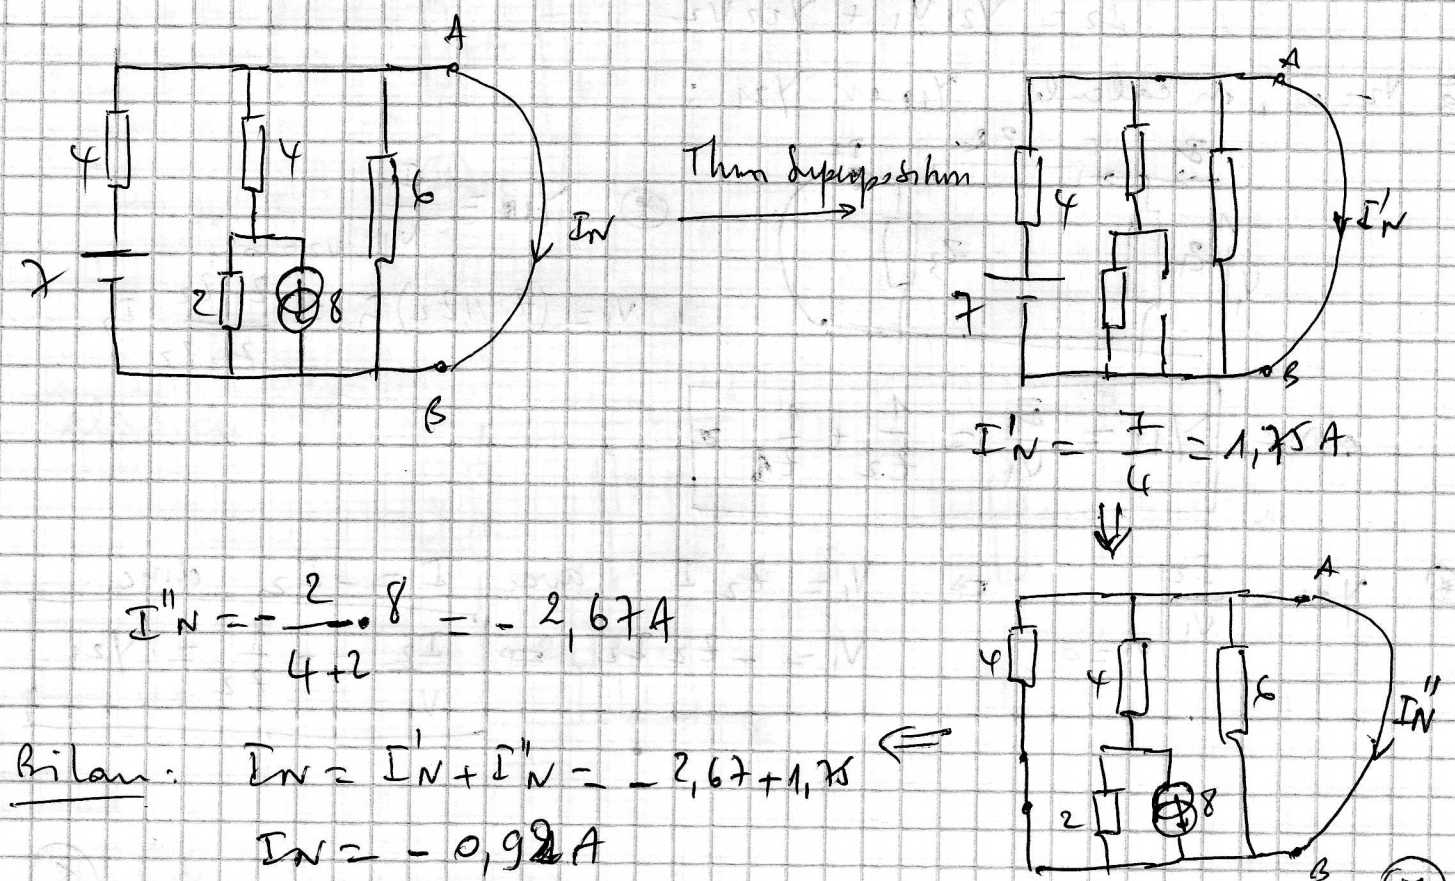 A
4
4
6
7
2
8
I_N
B
Thm Superposition
A
4
7
I'_N
B
I'_N = 7/4 = 1,75 A.
⇓
A
4
4
6
2
8
I''_N
B
⇐
I''_N = - 2/(4+2) . 8 = - 2,67 A
Bilan : I_N = I'_N + I''_N = - 2,67 + 1,75
I_N = - 0,92 A